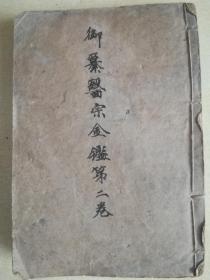 御纂醫宗金鑑第二卷